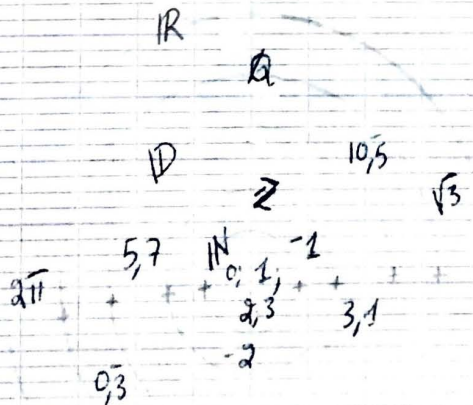 ℝ
ℚ
𝔻 10,5
ℤ √3
5,7 ℕ -1
0; 1;
2π 2,3 3,1
-2
0,3̄